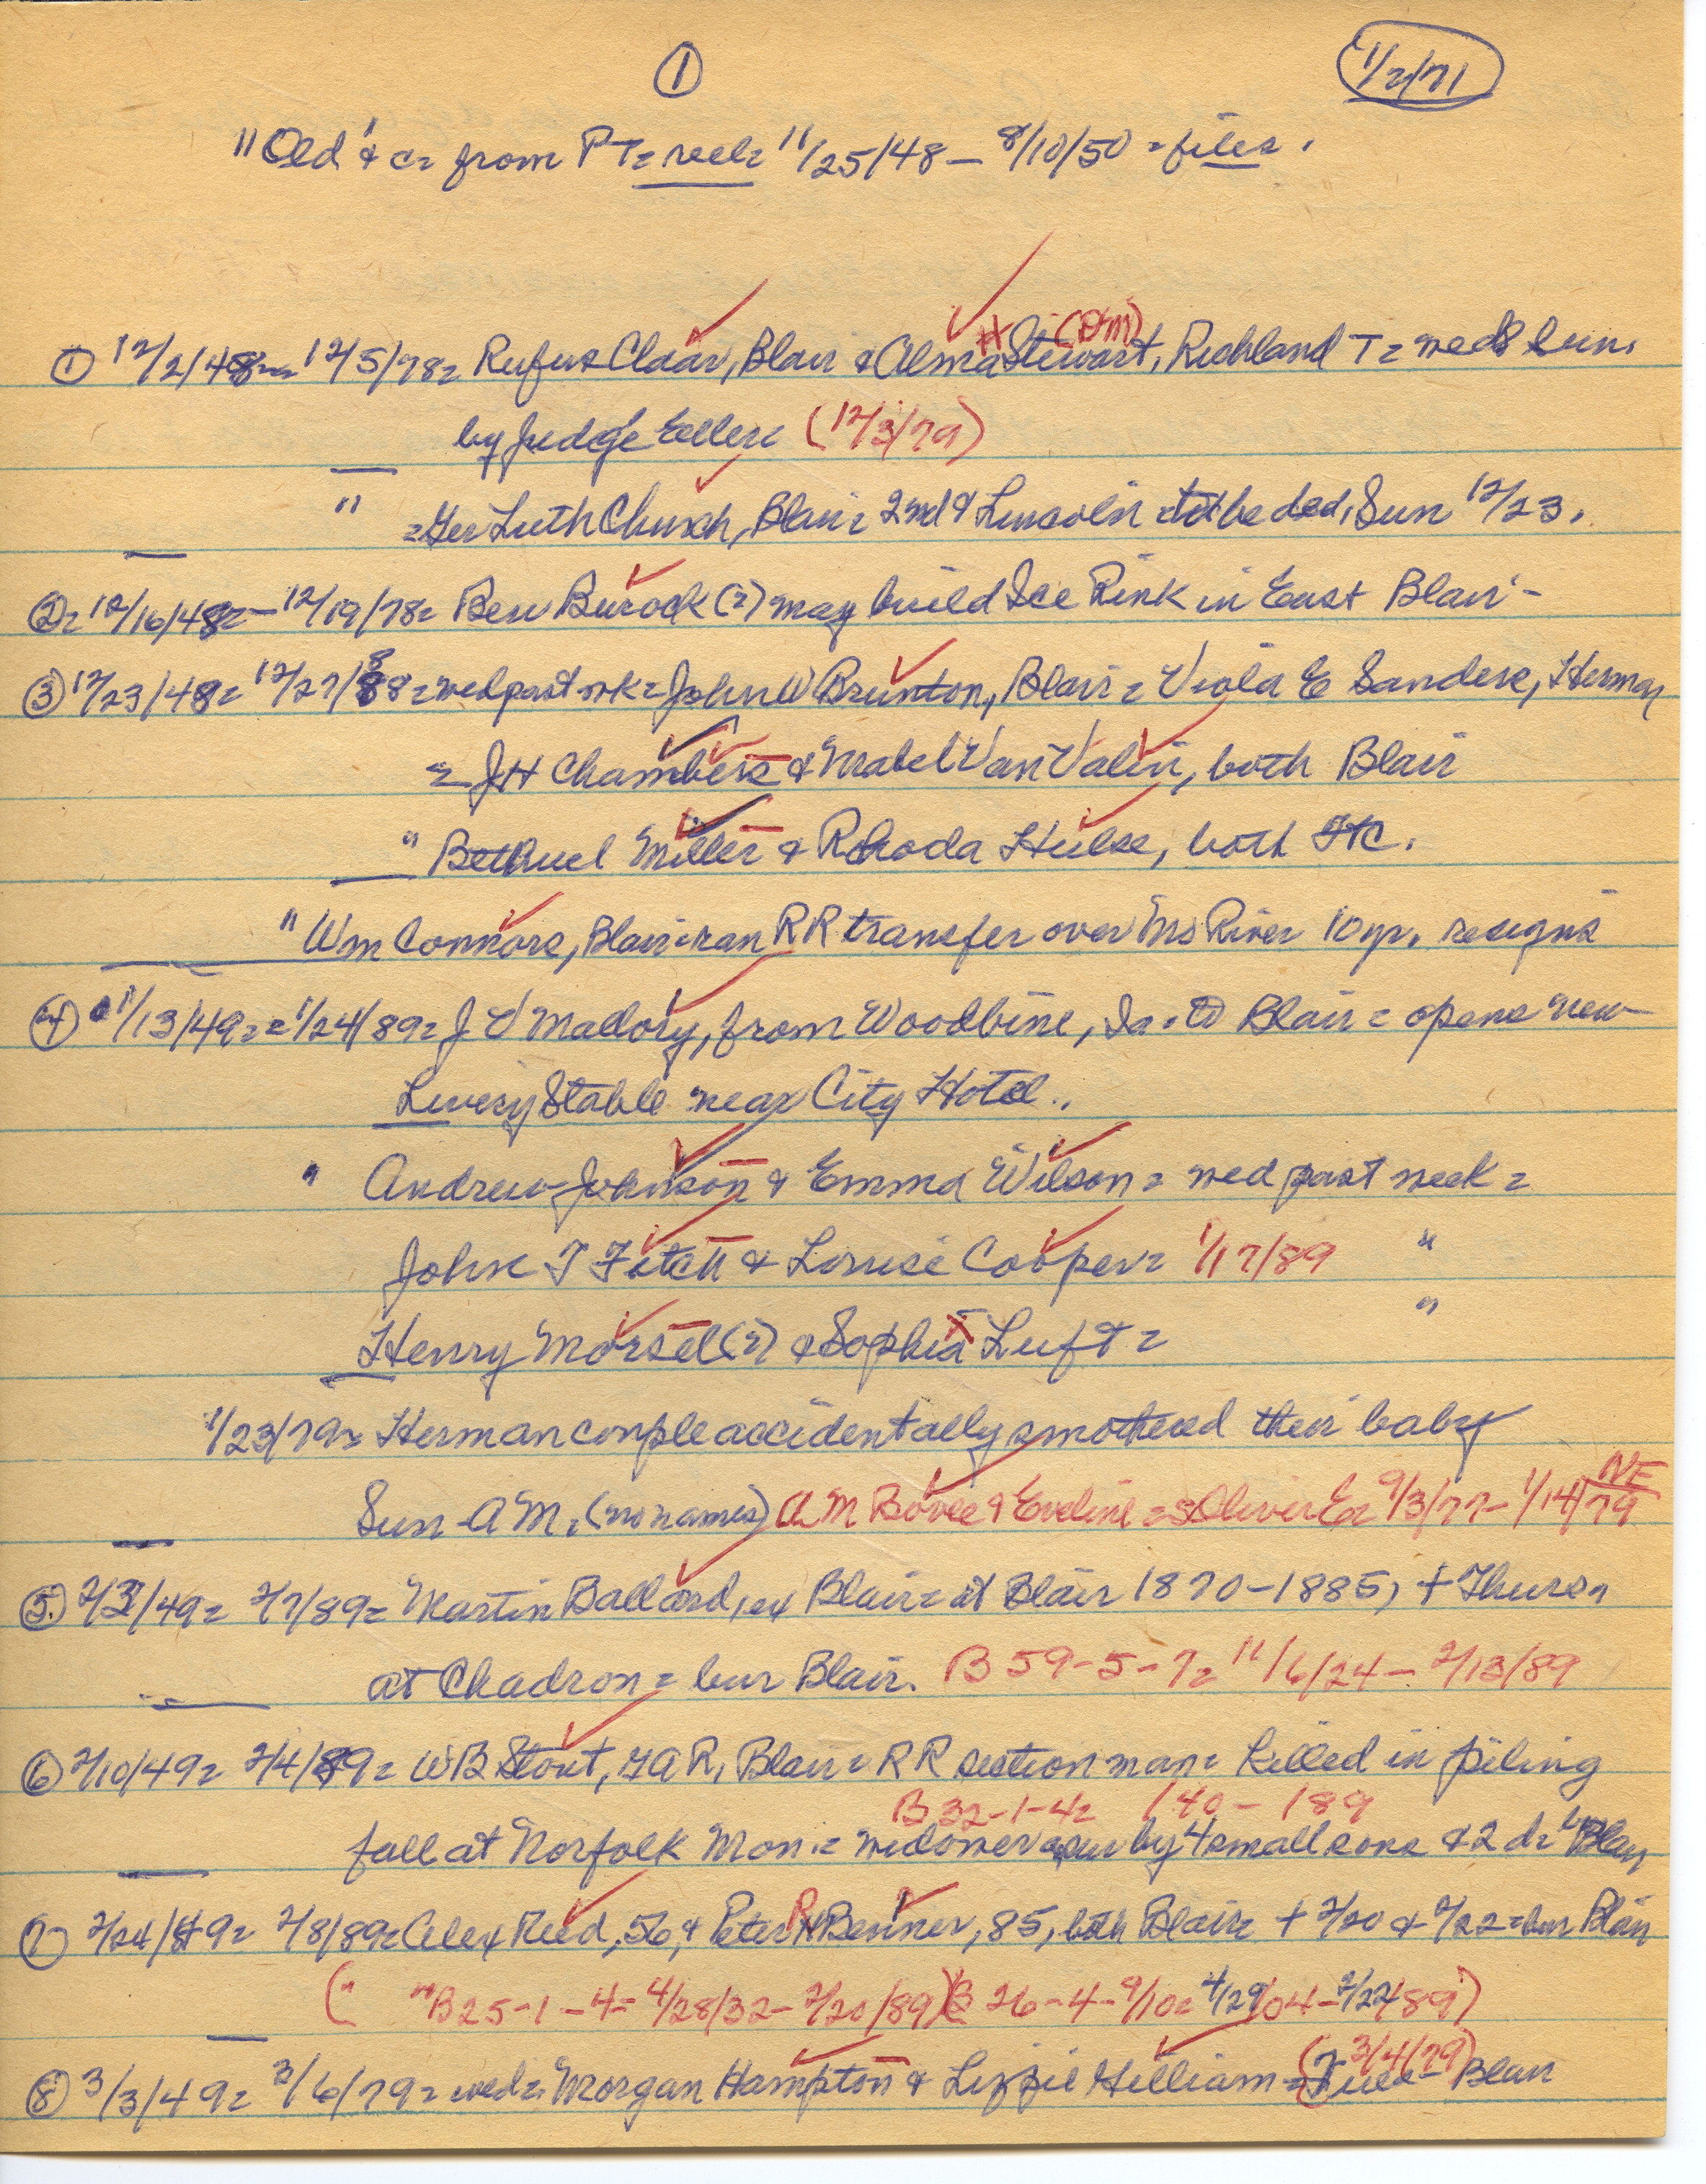 ①
1/2/71
"Old" & c= from PT= reel= 11/25/48 – 8/10/50 = files.
① 12/2/48= 12/5/78= Rufus Claar, Blair & Alma H Stewart, (D+M) Richland T= weds Sun.
by Judge Eller= (12/3/79)
" = Ger Luth Church, Blair= 2nd & Lincoln to be ded, Sun 12/23.
②= 12/16/48= – 12/19/78= Ben Burock (?) may build Ice Rink in East Blair –
③ 12/23/48= 12/27/88= wed past wk= John W Brunton, Blair= Viola E Sanders, Herman
= J H Chambers & Mabel Van Valin, both Blair
" Bethuel Miller & Rhoda Hulse, both FtC.
" Wm Connors, Blair= ran RR transfer over Mo River 10 yr. resigns
④ 1/13/49= = 1/24/89= J V Mallory, from Woodbine, Ia. to Blair = opens new
Livery Stable near City Hotel.
" Andrew Johnson & Emma Wilson = wed past week =
John T Fitch & Louise Cooper= 1/17/89 "
Henry Morsel (?) & Sophia Luft = "
1/23/79= Herman couple accidentally smothered their baby
Sun AM. (no names) A M Bovee & Eveline = s Oliver E= 9/3/77 – 1/14/79 NE
⑤ 2/3/49= 2/7/89= Martin Ballard, ex Blair= at Blair 1870–1885, + Thurs.
at Chadron = bur Blair. B 59-5-7= 11/6/24 – 2/13/89
⑥ 2/10/49= 2/4/89= WB Stout, GAR, Blair= RR section man= killed in piling
B 32-1-4= 140 – 189
fall at Norfolk Mon.= widower sur by 4 small sons & 2 d= b Blair
⑦ 2/24/49= 2/8/89= Alex Reed, 56, & Peter R Benner, 85, both Blair= + 2/20 & 2/22= bur Blair
(" "B 25-1-4= 4/28/32 – 2/20/89) (B 26-4-9/10= 4/29/04 – 2/22/89)
⑧ 3/3/49= 3/6/79= wed= Morgan Hampton & Lizzie Gilliam = (3/4/79) Blair